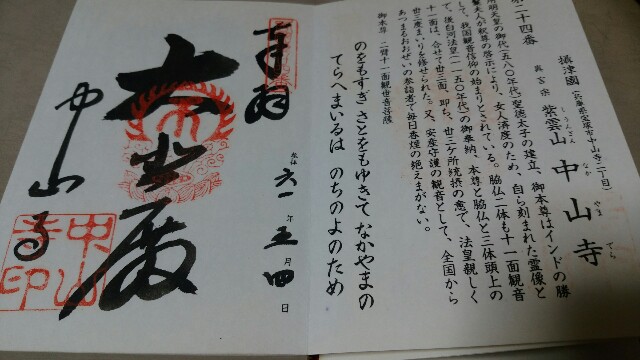 第二十四番
攝津國(兵庫県宝塚市中山寺二丁目)
真言宗 紫雲山 中山寺
しうんざん なか やま でら
用明天皇の御代(五八〇年代)聖徳太子の建立、御本尊はインドの勝
鬘夫人が釈尊の啓示により、女人済度のため、自ら刻まれた霊像と
して、我国観音信仰の始まりとされている。脇仏二体も十一面観音
で、後白河法皇(一一五〇年代)の御奉納、本尊と脇仏と三体頭上の
十一面は、合せて卅三面、即ち、卅三ケ所統摂の意で、法皇親しく
卅三度まいりを修せられた。又、安産守護の観音として、全国から
あつまるおおぜいの参詣者で毎日香煙の絶えまがない。
御本尊 二臂十一面観世音菩薩
のをもすぎ さとをもゆきて なかやまの
てらへまいるは のちのよのため
奉拝
六一年五月四日
大悲殿
中山寺
中山寺印